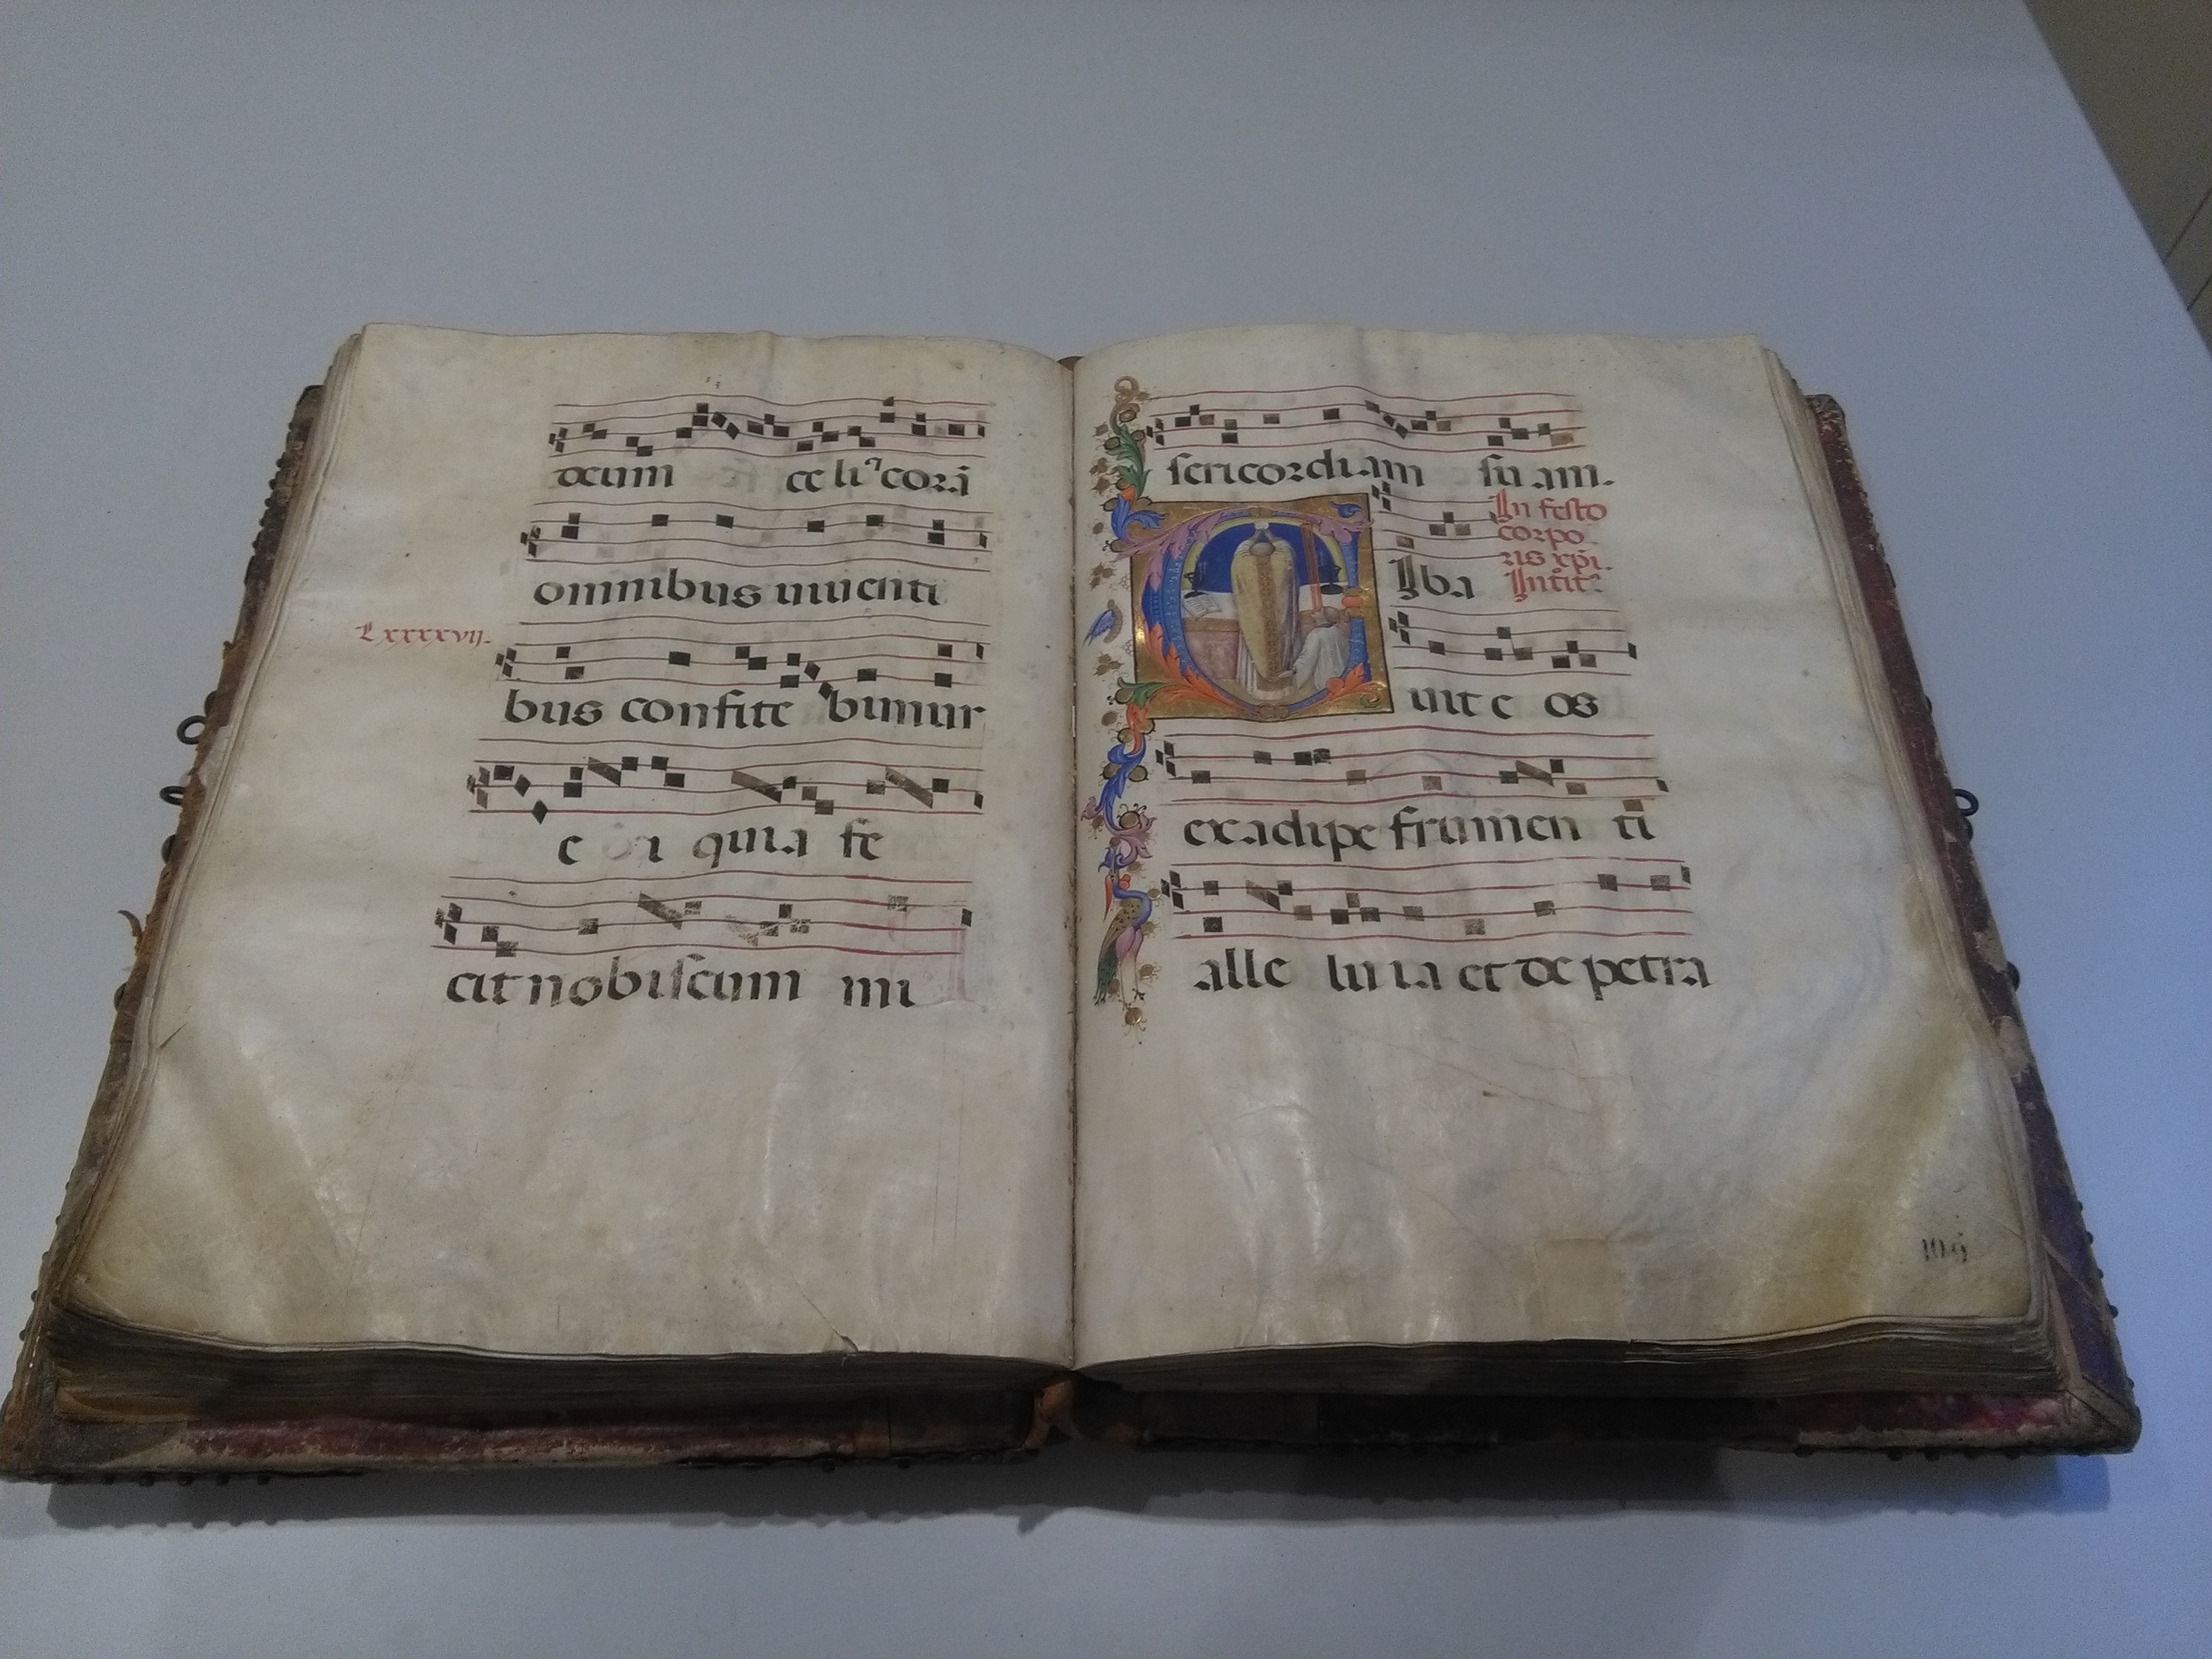 deum ce li coră
omnibus uiuenti
Lxxxxvij.
bus confite bimur
e i quia fe
cit nobiscum mi
sericordiam su am.
In festo
corpo
ris xpi.
Iba Introit
uit e os
ex adipe frumen ti
alle lu ia et de petra